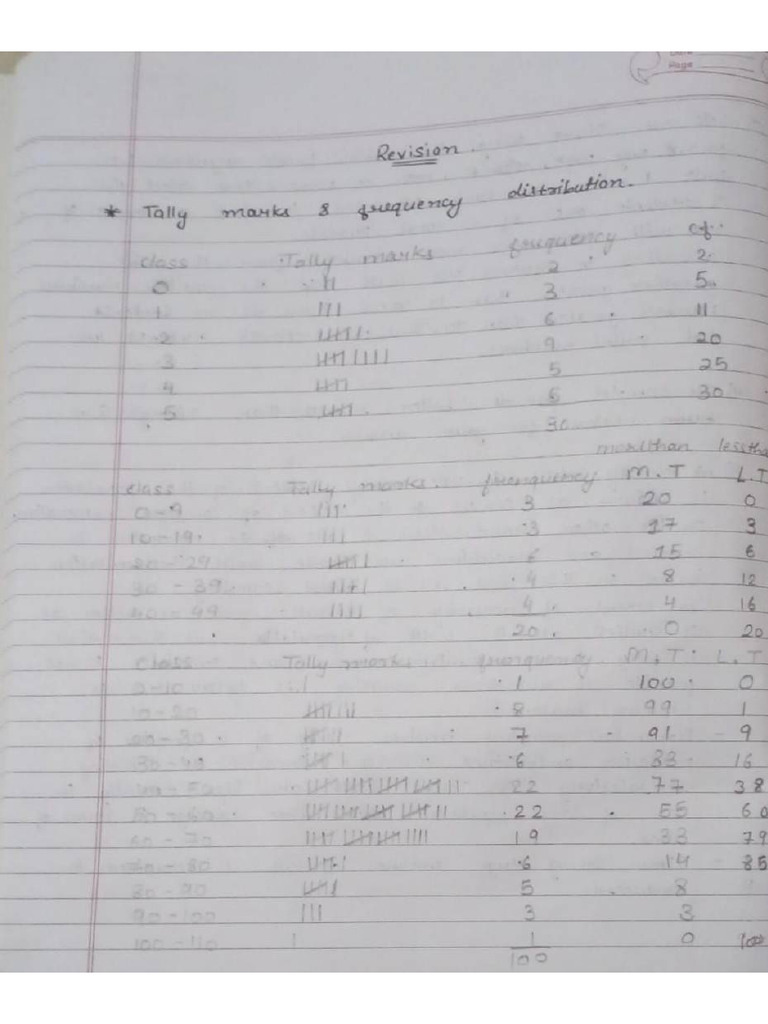 Page
Revision
* Tally marks & frequency distribution.
class Tally marks frequency cf.
0 || 2 2
1 ||| 3 5
2 |||| | 6 11
3 |||| |||| 9 20
4 |||| 5 25
5 |||| 5 30
30
morethan lessth
class Tally marks. fruequency M.T L.T
0-9 ||| 3 20 0
10-19 ||| 3 17 3
20-29 |||| | 6 15 6
30-39 |||| 4 8 12
40-49 |||| 4 4 16
20 0 20
class Tally marks frequency M.T L.T
0-10 | 1 100 0
10-20 |||| ||| 8 99 1
20-30 |||| || 7 91 9
30-40 |||| | 6 83 16
40-50 |||| |||| |||| |||| || 22 77 38
50-60 |||| |||| |||| |||| || 22 55 60
60-70 |||| |||| |||| |||| 19 33 79
70-80 |||| | 6 14 85
80-90 |||| 5 8
90-100 ||| 3 3
100-110 | 1 0 100
100